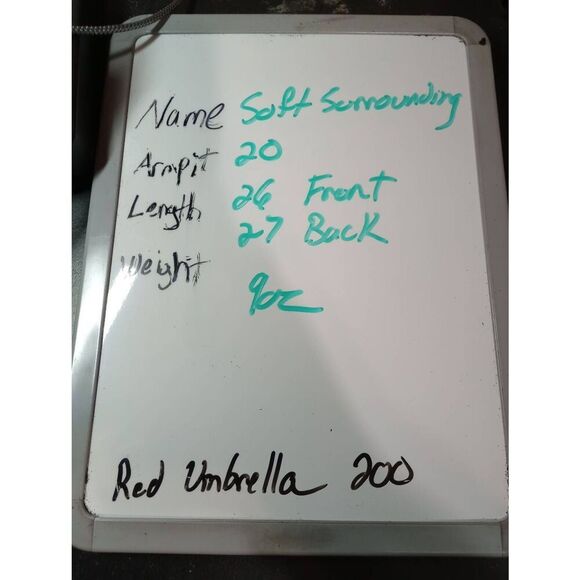 Name Soft Surrounding
Armpit 20
Length 26 Front
27 Back
Weight 9oz
Red Umbrella 200